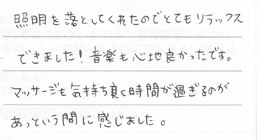 照明を落としてくれたのでとてもリラックス
できました！音楽も心地良かったです。
マッサージも気持ち良く時間が過ぎるのが
あっという間に感じました。